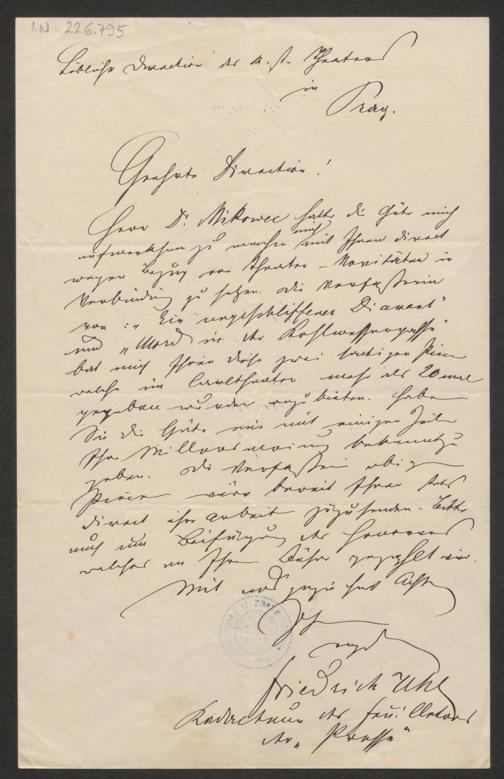 I.N. 226.795
Löbliche Direction des k. st. Theaters
in
Prag.
Geehrte Direction!
Herr Dr. Mikowec hatte die Güte mich
aufmerksam zu machen mich mit Ihnen direct
wegen Bezug von Theater-Novitäten in
Verbindung zu setzen. Die Verfasserin
von: „Ein ungeschliffener Diamant"
und „Mord in der Kohlmessergasse"
hat mich Ihnen diese zwei Piecen
welche im Carltheater mehr als 20 mal
gegeben wurden anzubieten. Haben
Sie die Güte mir mit einigen Zeilen
Ihre Willensmeinung bekannt zu
geben. Die Verfasserin obiger
Piecen wäre bereit Ihnen
direct ihre Arbeit zuzusenden. Bitte
auch um Beifügung des Honorares
welches an Ihrer Bühne gezahlt wird.
Mit
Friedrich Uhl
Redacteur des Feuilletons
der „Presse"